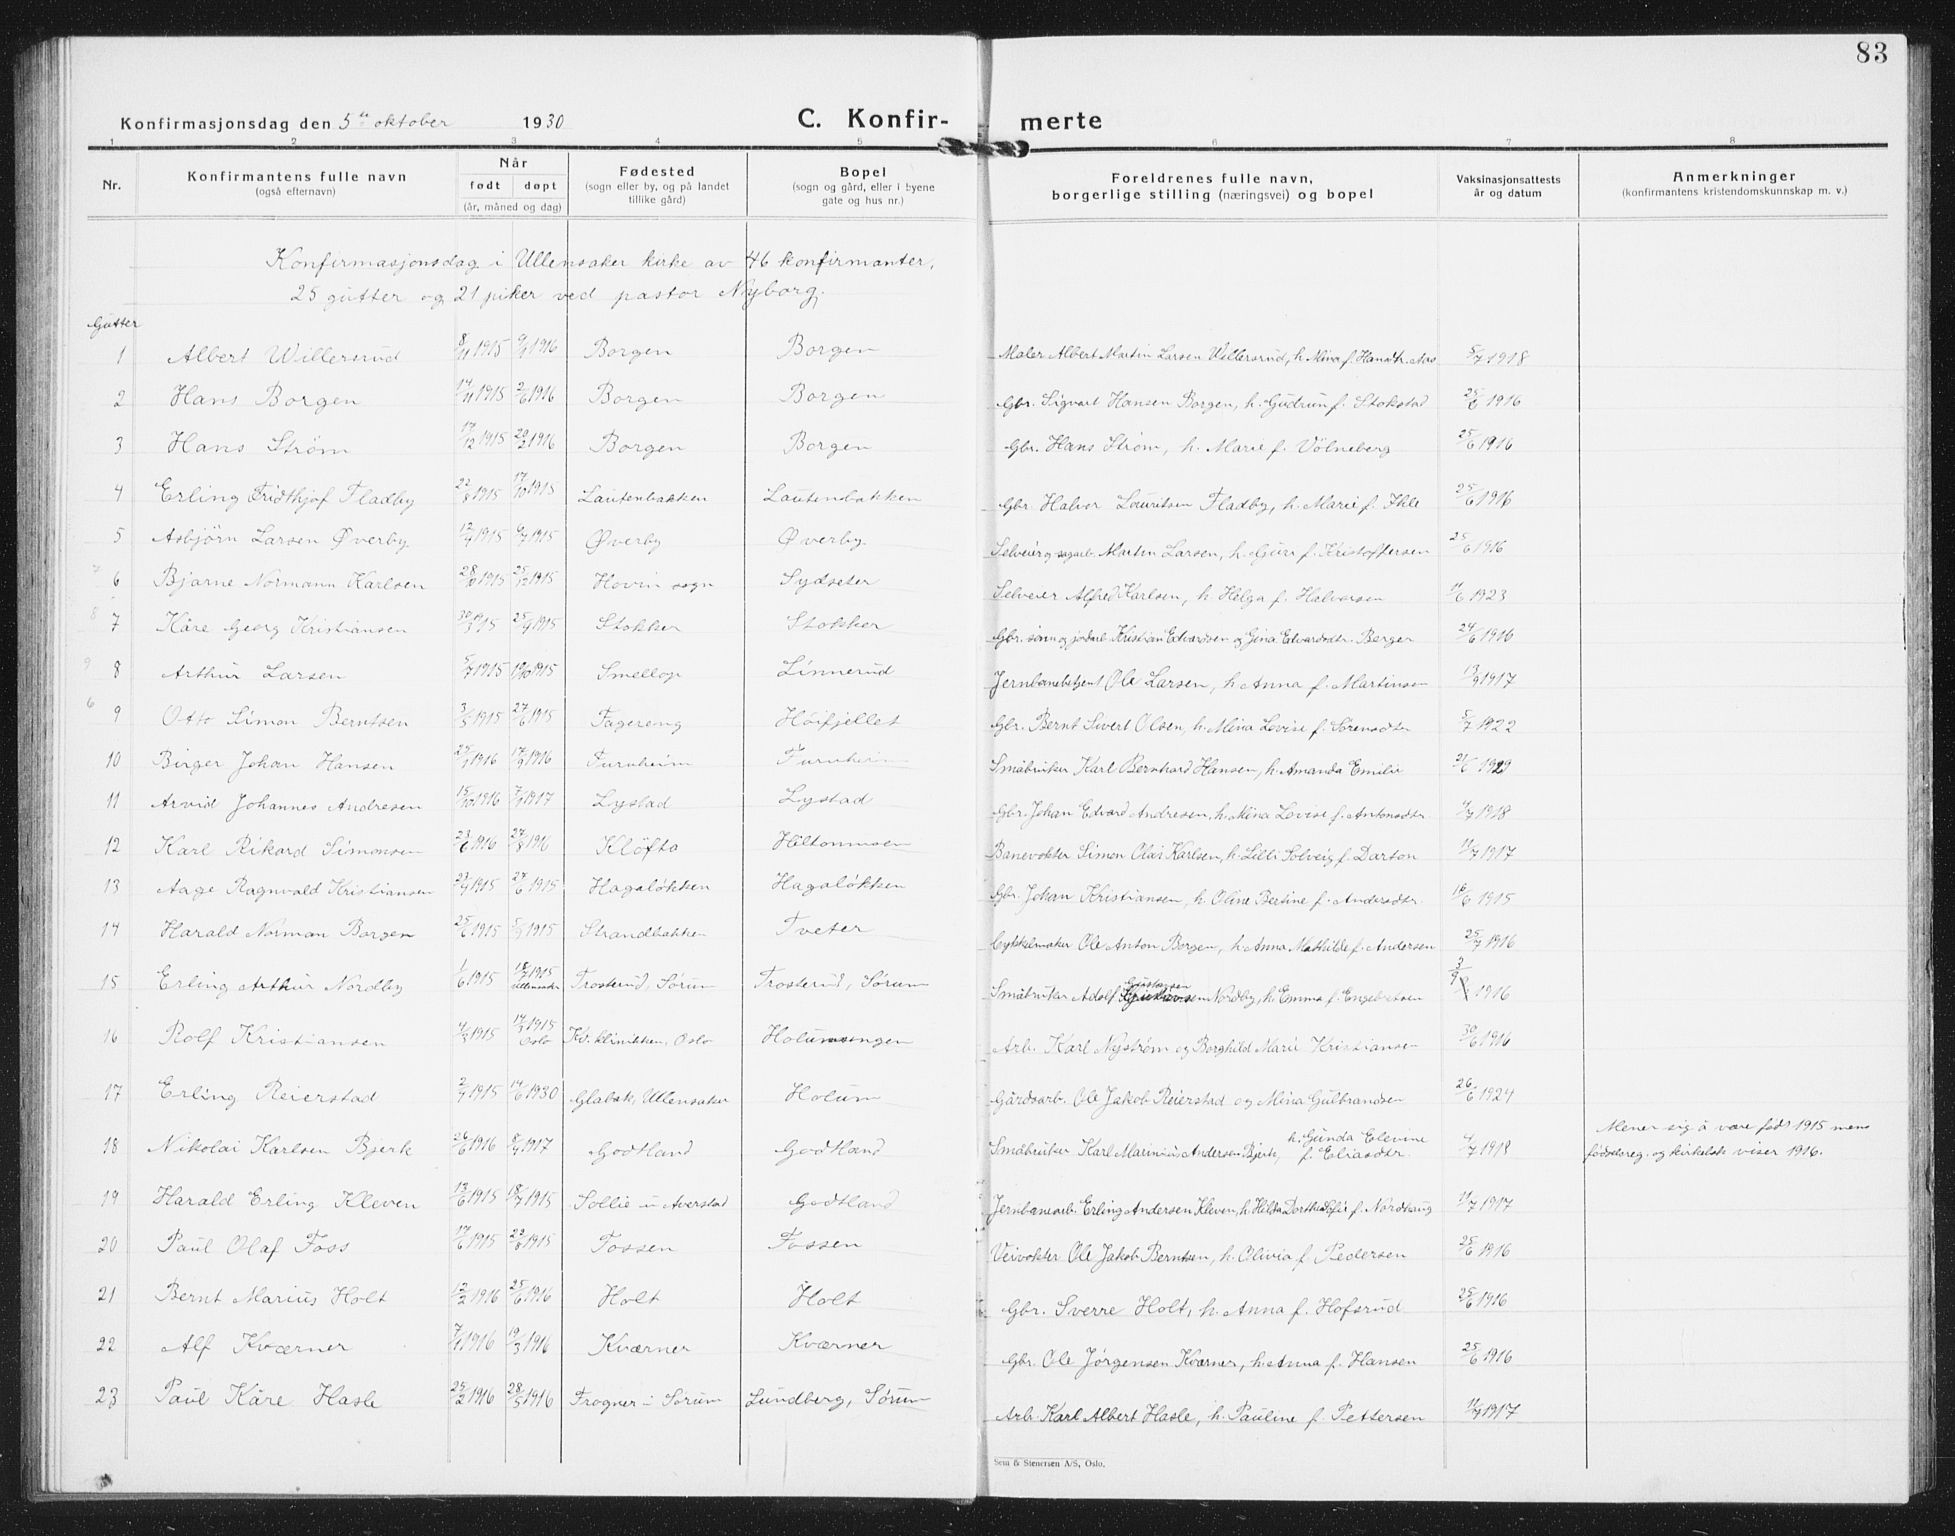 83
Konfirmasjonsdag den 5te oktober 1930
C. Konfirmerte
1 2 3 4 5 6 7 8
Nr. | Konfirmantens fulle navn (også efternavn) | Når født døpt (år, måned og dag) | Fødested (sogn eller by, og på landet tillike gård) | Bopel (sogn og gård, eller i byene gate og hus nr.) | Foreldrenes fulle navn, borgerlige stilling (næringsvei) og bopel | Vaksinasjonsattests år og datum | Anmerkninger (konfirmantens kristendomskunnskap m. v.)
Konfirmasjonsdag i Ullensaker kirke av 46 konfirmanter,
25 gutter og 21 piker ved pastor Nyborg.
Gutter
1 Albert Willersrud 8/11 1915 9/1 1916 Borgen Borgen Maler Albert Martin Larsen Willersrud, h. Mina f. Hansdtr. Aas 5/7 1918
2 Hans Borgen 14/11 1915 2/6 1916 Borgen Borgen Gbr. Sigvart Hansen Borgen, h. Gudrun f. Stokstad 25/6 1916
3 Hans Strøm 17/12 1915 20/2 1916 Borgen Borgen Gbr. Hans Strøm, h. Marie f. Völneberg 25/6 1916
4 Erling Fridthjof Fladby 22/8 1915 17/10 1915 Lautenbakken Lautenbakken Gbr. Halvor Lauritsen Fladby, h. Marie f. Ihle 25/6 1916
5 Asbjörn Larsen Øverby 12/4 1915 9/7 1915 Øverby Øverby Selveier og sagarb. Martin Larsen, h. Guri f. Kristoffersen 25/6 1916
7 6 Bjarne Normann Karlsen 28/8 1915 25/12 1915 Hovin sogn Sydseter Selveier Alfred Karlsen, h. Helga f. Halvorsen 11/6 1923
8 7 Kåre Georg Kristiansen 30/3 1915 25/9 1915 Stokker Stokker Gbr. sønn og jordarb. Kristian Edvardsen og Gina Edvardsdtr. Berger 24/6 1916
9 8 Arthur Larsen 5/7 1915 10/10 1915 Smellop Linnerud Jernbanebetjent Ole Larsen, h. Anna f. Martinsen 13/9 1917
6 9 Otto Simon Berntsen 3/5 1915 27/6 1915 Fagereng Höifjellet Gbr. Bernt Sivert Olsen, h. Mina Lovise f. Sørensdtr 5/7 1922
10 Birger Johan Hansen 25/1 1916 17/9 1916 Furuheim Furuheim Småbruker Karl Bernhard Hansen, h. Amanda Emilie 21/6 1929
11 Arvid Johannes Andresen 15/10 1916 7/1 1917 Lystad Lystad Gbr. Johan Edvard Andresen, h. Mina Lovise f. Antonsdtr. 4/7 1918
12 Karl Rikard Simonsen 23/6 1916 27/8 1916 Klöfta Hiltonmoen Banevokter Simon Olai Karlsen, h. Lilli Solveig f. Darton 11/7 1917
13 Aage Ragnvald Kristiansen 23/4 1915 27/6 1915 Hagaløkken Hagaløkken Gbr. Johan Kristiansen, h. Oline Bertine f. Andersdtr. 16/6 1915
14 Harald Norman Borgen 25/6 1915 5/9 1915 Strandbakken Tveter Cykkelmaker Ole Anton Borgen, h. Anna Mathilde f. Andersen 25/7 1916
15 Erling Arthur Nordby 1/6 1915 18/7 1915 Ullensaker Trosterud, Sørum Trosterud, Sørum Småbruker Adolf Gustavsen Nordby, h. Emma f. Engebretsen 3/9 1916
16 Rolf Kristiansen 4/3 1915 14/3 1915 Oslo Kv. klinikken, Oslo Holumsengen Arb. Karl Nystrøm og Borghild Marie Kristiansen 30/6 1916
17 Erling Reierstad 2/4 1915 14/6 1930 Glabak, Ullensaker Holum Gårdsarb. Ole Jakob Reierstad og Mina Gulbrandsen 26/6 1924
18 Nikolai Karlsen Bjerk 26/6 1916 8/4 1917 Godtland Godtland Småbruker Karl Marinius Andersen Bjerk, h. Gunda Elevine f. Eliasdtr. 4/7 1918 Mener sig å være født 1915 mens fødselsreg. og kirkebok viser 1916.
19 Harald Erling Kleven 13/6 1915 18/7 1915 Sollie u Averstad Godtland Jernbanearb. Erling Andersen Kleven, h. Hilda Dorthea Sofie f. Nordhaug 11/7 1917
20 Paul Olaf Foss 17/6 1915 22/8 1915 Fossen Fossen Veivokter Ole Jakob Berntsen, h. Olivia f. Pedersen 25/6 1916
21 Bernt Marius Holt 12/2 1916 25/6 1916 Holt Holt Gbr. Sverre Holt, h. Anna f. Hofsrud 25/6 1916
22 Alf Kværner 7/1 1916 19/3 1916 Kværner Kværner Gbr. Ole Jørgensen Kværner, h. Anna f. Hansen 25/6 1916
23 Paul Kåre Hasle 25/2 1916 28/5 1916 Frogner i Sørum Lundberg, Sørum Arb. Karl Albert Hasle, h. Pauline f. Pettersen 11/7 1917
Sem & Stenersen A/S, Oslo.